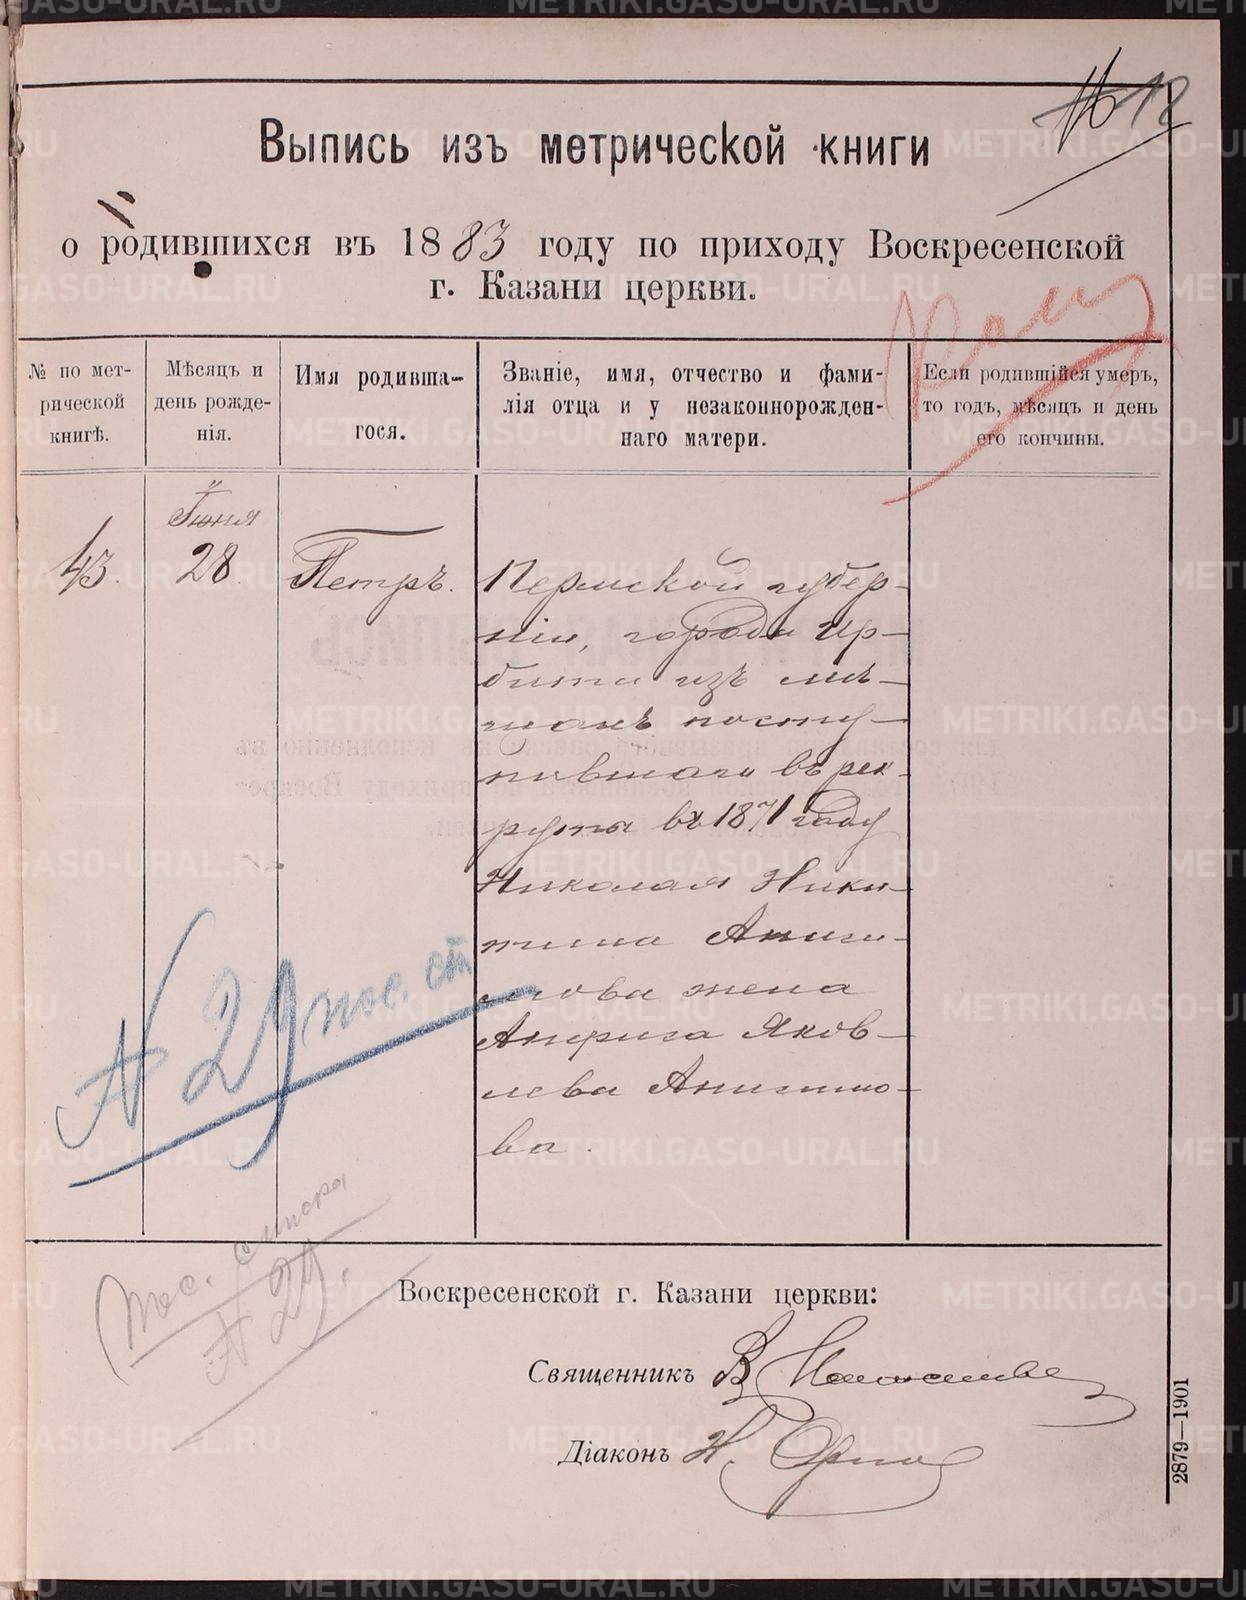 № 12
Выпись изъ метрической книги
о родившихся въ 1883 году по приходу Воскресенской
г. Казани церкви.
№ по мет-
рической
книгѣ.
Мѣсяцъ и
день рожде-
нія.
Имя родивша-
гося.
Званіе, имя, отчество и фами-
лія отца и у незаконнорожден-
наго матери.
Если родившійся умеръ,
то годъ, мѣсяцъ и день
его кончины.
43.
Іюня
28.
Петръ.
Пермской губер-
ніи, города Ир-
бити изъ мѣ-
щанъ посту-
пившаго въ рек-
руты въ 1871 году
Николая Ники-
тина Аниси-
мова жена
Анфиса Яков-
лева Анисимо-
ва.
№ 29 пос. сп
Пос. списка
№ 29.
Воскресенской г. Казани церкви:
Священникъ В.
Діаконъ Н.
2879—1901
METRIKI.GASO-URAL.RU